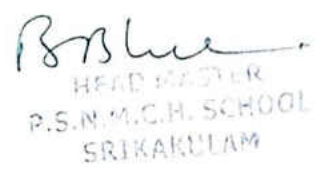 HEAD MASTER
P.S.N.M.C.H. SCHOOL
SRIKAKULAM